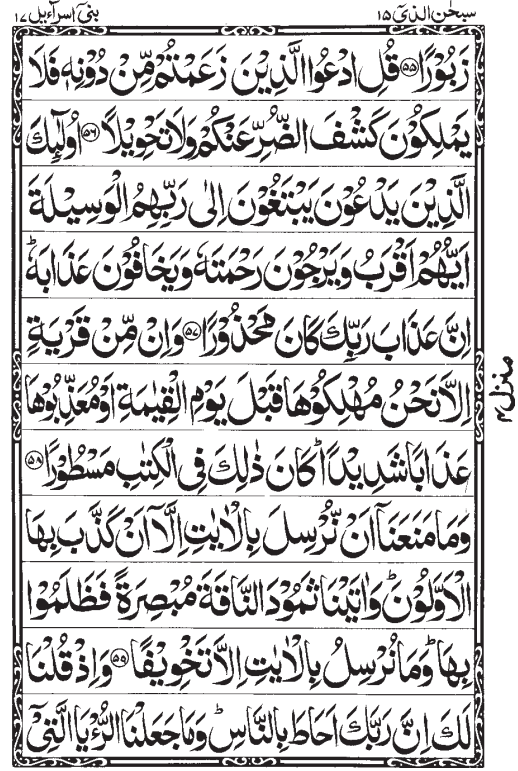 سبحٰن الذیٓ ١٥
بنیٓ اسرآءیل ١٧
زَبُوْرًا ۝٥٥ قُلِ ادْعُوا الَّذِيْنَ زَعَمْتُمْ مِّنْ دُوْنِهٖ فَلَا
يَمْلِكُوْنَ كَشْفَ الضُّرِّ عَنْكُمْ وَلَا تَحْوِيْلًا ۝٥٦ اُولٰٓئِكَ
الَّذِيْنَ يَدْعُوْنَ يَبْتَغُوْنَ اِلٰى رَبِّهِمُ الْوَسِيْلَةَ
اَيُّهُمْ اَقْرَبُ وَيَرْجُوْنَ رَحْمَتَهٗ وَيَخَافُوْنَ عَذَابَهٗ ؕ
اِنَّ عَذَابَ رَبِّكَ كَانَ مَحْذُوْرًا ۝٥٧ وَاِنْ مِّنْ قَرْيَةٍ
اِلَّا نَحْنُ مُهْلِكُوْهَا قَبْلَ يَوْمِ الْقِيٰمَةِ اَوْ مُعَذِّبُوْهَا
عَذَابًا شَدِيْدًا ؕ كَانَ ذٰلِكَ فِى الْكِتٰبِ مَسْطُوْرًا ۝٥٨
وَمَا مَنَعَنَاۤ اَنْ نُّرْسِلَ بِالْاٰيٰتِ اِلَّاۤ اَنْ كَذَّبَ بِهَا
الْاَوَّلُوْنَ ؕ وَاٰتَيْنَا ثَمُوْدَ النَّاقَةَ مُبْصِرَةً فَظَلَمُوْا
بِهَا ؕ وَمَا نُرْسِلُ بِالْاٰيٰتِ اِلَّا تَخْوِيْفًا ۝٥٩ وَاِذْ قُلْنَا
لَكَ اِنَّ رَبَّكَ اَحَاطَ بِالنَّاسِ ؕ وَمَا جَعَلْنَا الرُّءْيَا الَّتِىْۤ
منزل ٤